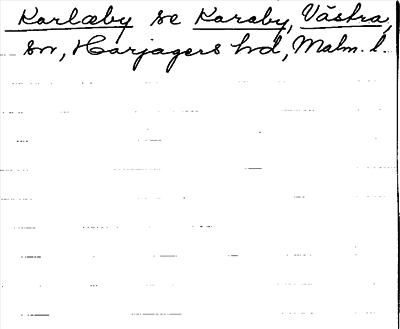 Karlæby se Karaby, Västra,
sn, Harjagers hd, Malm. l.